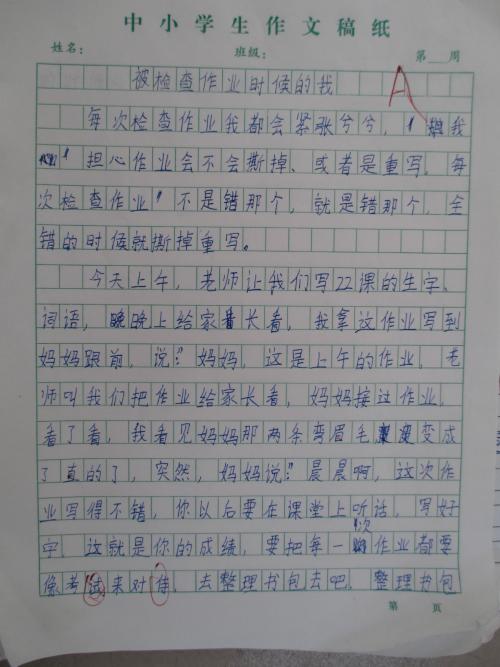 中小学生作文稿纸
姓名： 班级： 第 周
被检查作业时候的我 A
每次检查作业我都会紧张兮兮，我
担心作业会不会撕掉、或者是重写。每
次检查作业，不是错那个，就是错那个，全
错的时候就撕掉重写。
今天上午，老师让我们写22课的生字、
词语，晚上给家长看，我拿这作业写到
妈妈跟前，说：“妈妈，这是上午的作业，老
师叫我们把作业给家长看，妈妈接过作业，
看了看，我看见妈妈那两条弯眉毛变成
了直的了，突然，妈妈说：“晨晨啊，这次作
业写得不错，你以后要在课堂上听话，写好
字，这就是你的成绩，要把每一次作业都要
像考试来对待，去整理书包去吧，整理书包
第 页